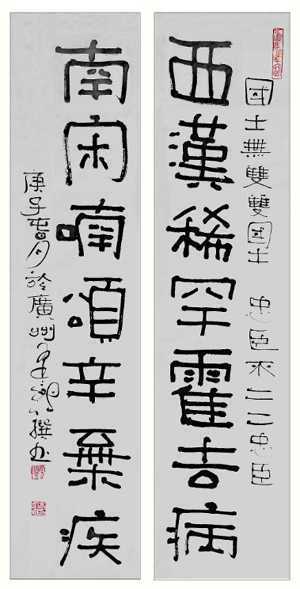 國士無雙雙國士 忠臣不二二忠臣
西漢稀罕霍去病
南宋喃頌辛棄疾
庚子春月於廣州撰书